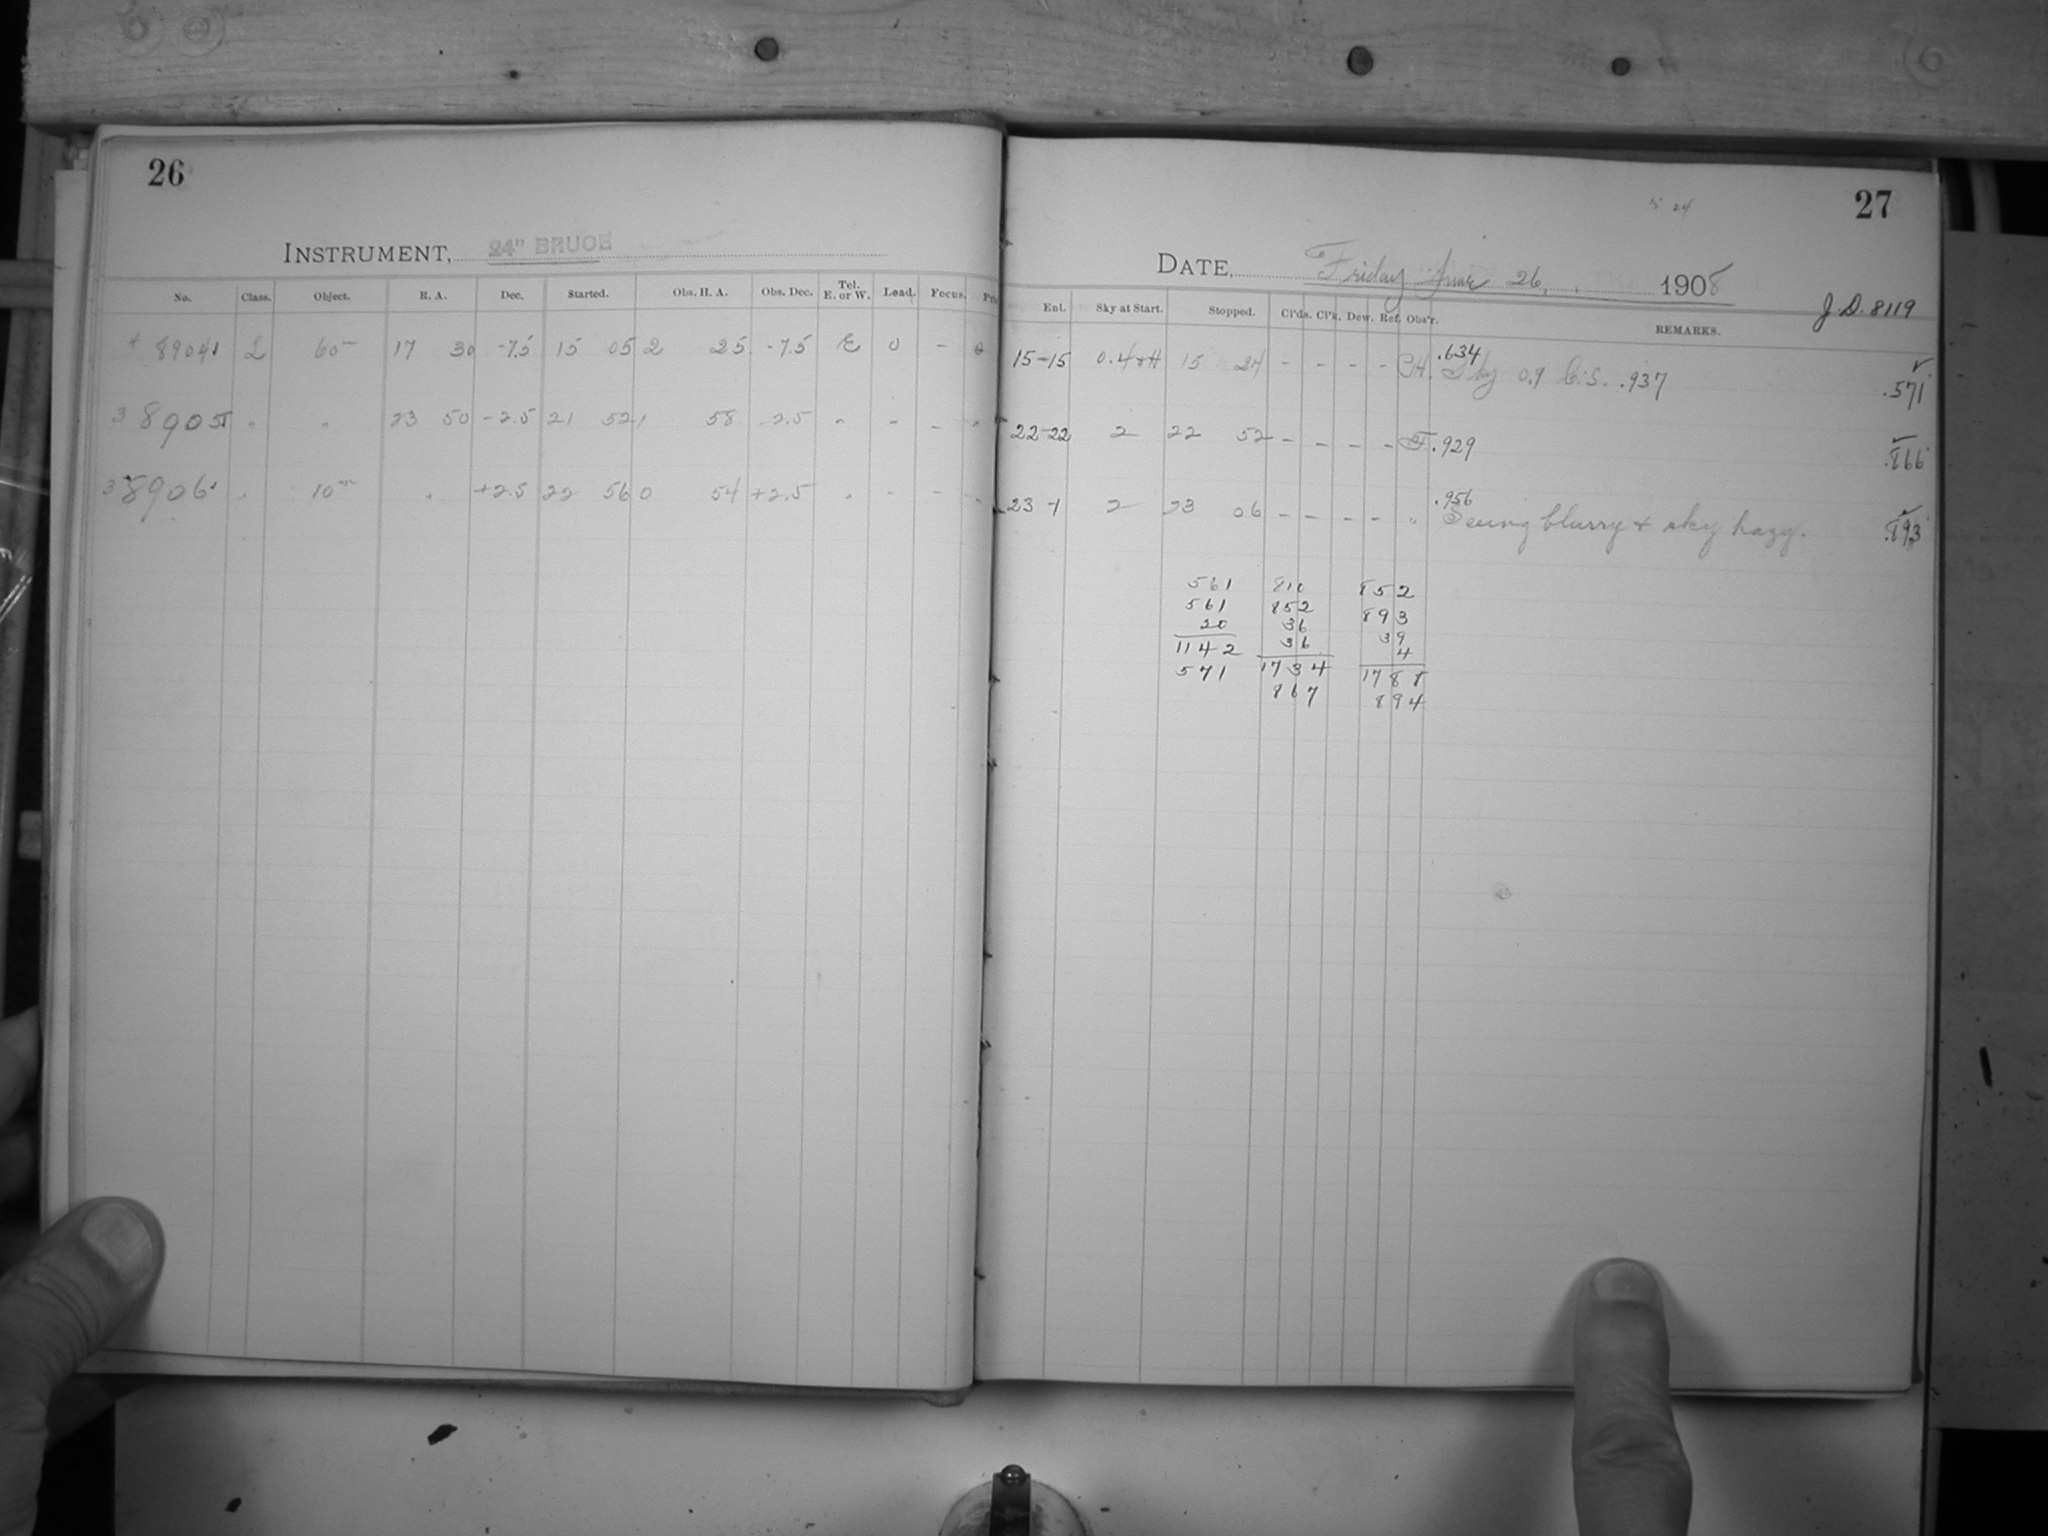 26
INSTRUMENT, 24" BRUCE
No. Class. Object. R. A. Dec. Started. Obs. H. A. Obs. Dec. Tel. E. or W. Load. Focus.
8904 L 60m 17 30 -7.5 15 05 2 25 -7.5 E 0 - 0
38905 " " 23 50 -2.5 21 52 1 58 -2.5 " - - "
38906 " 10m " +2.5 22 56 0 54 +2.5 " - - -
27
DATE, Friday June 26, 1908
J. D. 8119
Ent. Sky at Start. Stopped. Cl'ds. Cl'k. Dew. Ref. Obs'r. REMARKS.
15-15 15 24 - - - - .634 Sky 0.9 .937 .571
22-22 2 22 52 - - - - F .929 .866
23-1 2 23 06 - - - - " .956 Seeing blurry + sky hazy. .893
561 810 852
561 852 893
20 36 39
1142 36 4
571 1734 1788
867 894